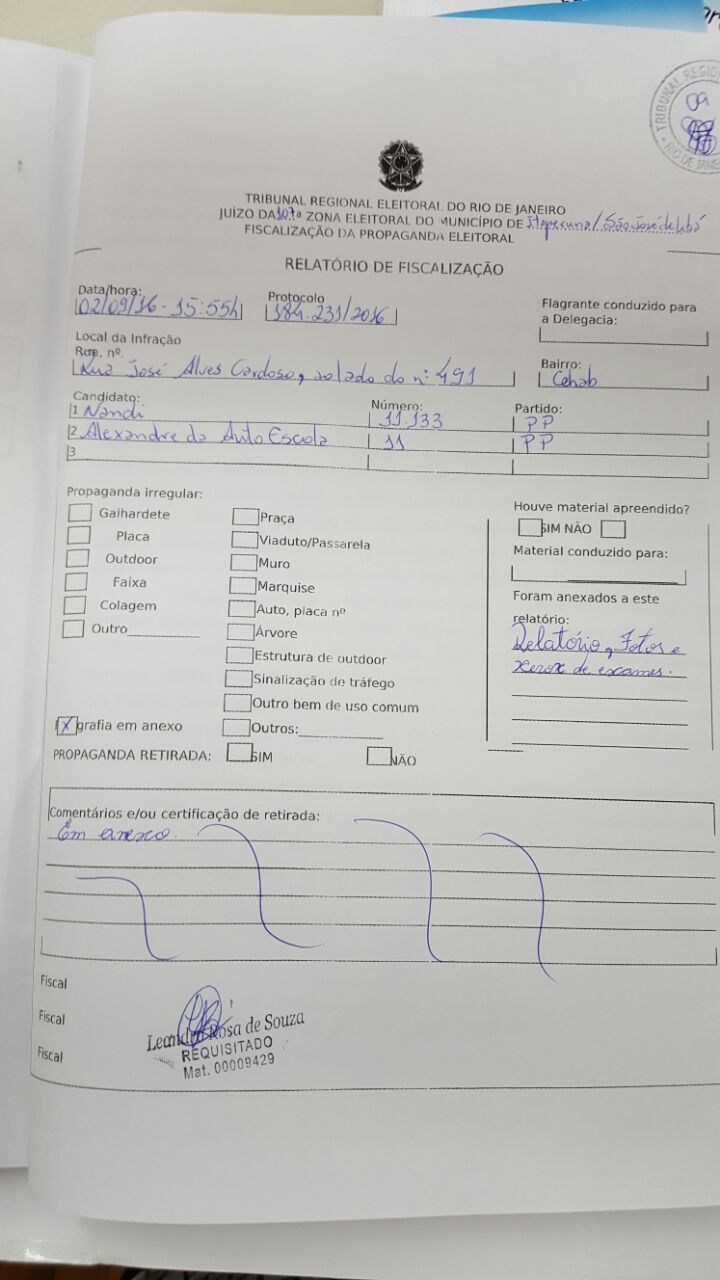 TRIBUNAL REGIONAL
09
RIO DE JANEI
TRIBUNAL REGIONAL ELEITORAL DO RIO DE JANEIRO
JUÍZO DA 107ª ZONA ELEITORAL DO MUNICÍPIO DE Itaperuna/São José de Ubá
FISCALIZAÇÃO DA PROPAGANDA ELEITORAL
RELATÓRIO DE FISCALIZAÇÃO
Data/hora: Protocolo Flagrante conduzido para
02/09/16 - 15:55h 184.231/2016 a Delegacia:
Local da Infração
Rua, nº. Bairro:
Rua José Alves Cardoso, ao lado do nº 491 Cehab
Candidato: Número: Partido:
1 Nandi 11.133 PP
2 Alexandre da Auto Escola 11 PP
3
Propaganda irregular: Houve material apreendido?
Galhardete Praça SIM NÃO
Placa Viaduto/Passarela Material conduzido para:
Outdoor Muro
Faixa Marquise Foram anexados a este
Colagem Auto, placa nº relatório:
Outro Árvore Relatório, Fotos e
Estrutura de outdoor xerox de exames.
Sinalização de tráfego
Outro bem de uso comum
X grafia em anexo Outros:
PROPAGANDA RETIRADA: SIM NÃO
Comentários e/ou certificação de retirada:
Em anexo.
Fiscal
Fiscal
Fiscal
Leandro Rosa de Souza
REQUISITADO
Mat. 00009429